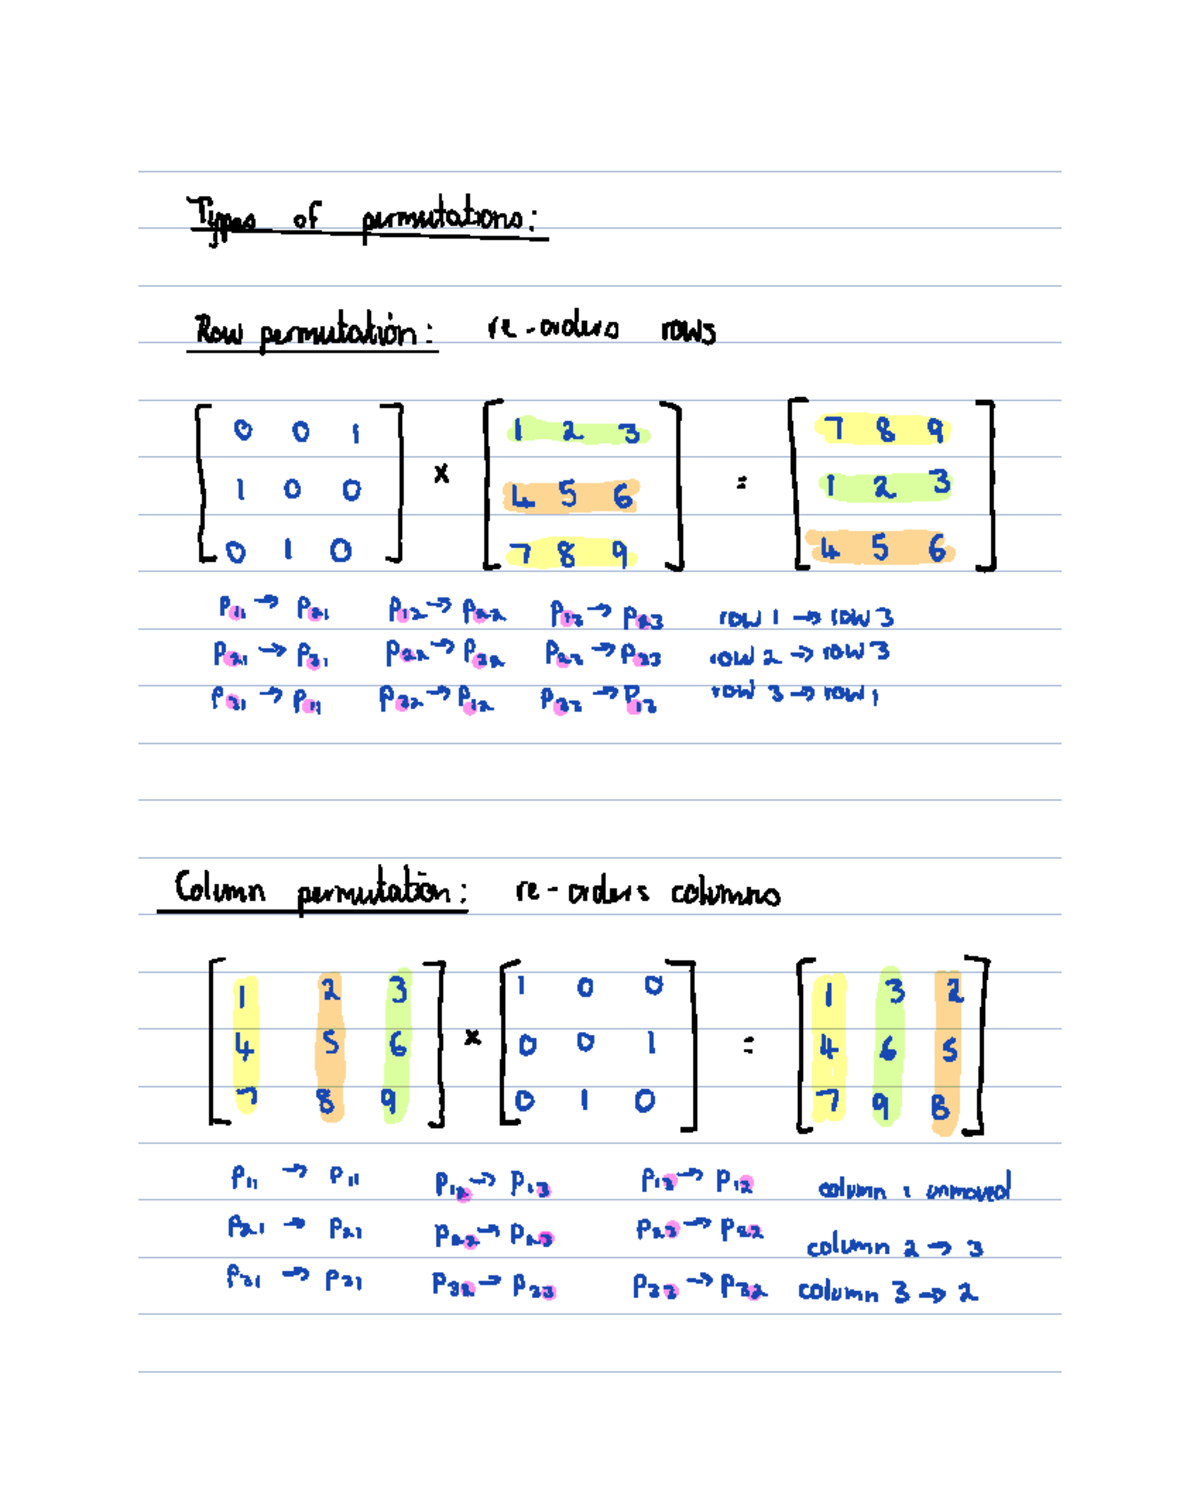 Types of permutations:
Row permutation: re-orders rows
0 0 1 1 2 3 7 8 9
1 0 0 × 4 5 6 = 1 2 3
0 1 0 7 8 9 4 5 6
P11 → P21 P12 → P22 P13 → P23 row 1 → row 3
P21 → P31 P22 → P32 P23 → P33 row 2 → row 3
P31 → P11 P32 → P12 P33 → P13 row 3 → row 1
Column permutation: re-orders columns
1 2 3 1 0 0 1 3 2
4 5 6 × 0 0 1 = 4 6 5
7 8 9 0 1 0 7 9 8
P11 → P11 P12 → P13 P13 → P12 column 1 unmoved
P21 → P21 P22 → P23 P23 → P22 column 2 → 3
P31 → P31 P32 → P33 P33 → P32 column 3 → 2